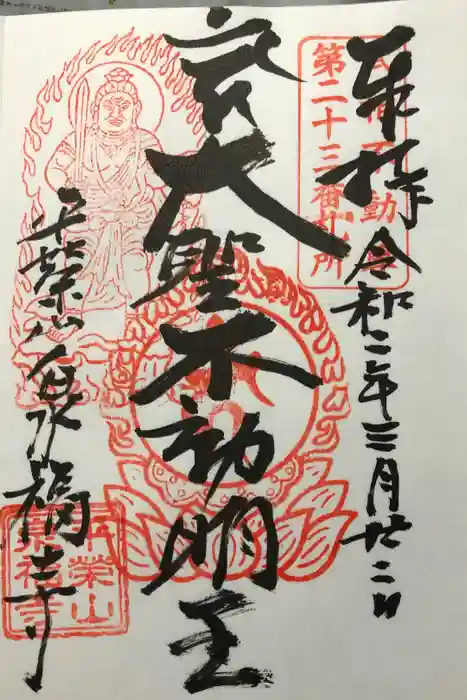 奉拝 令和二年三月廿二日
武相不動尊
第二十三番札所
大聖不動明王
平榮山泉福寺
平榮山
泉福寺